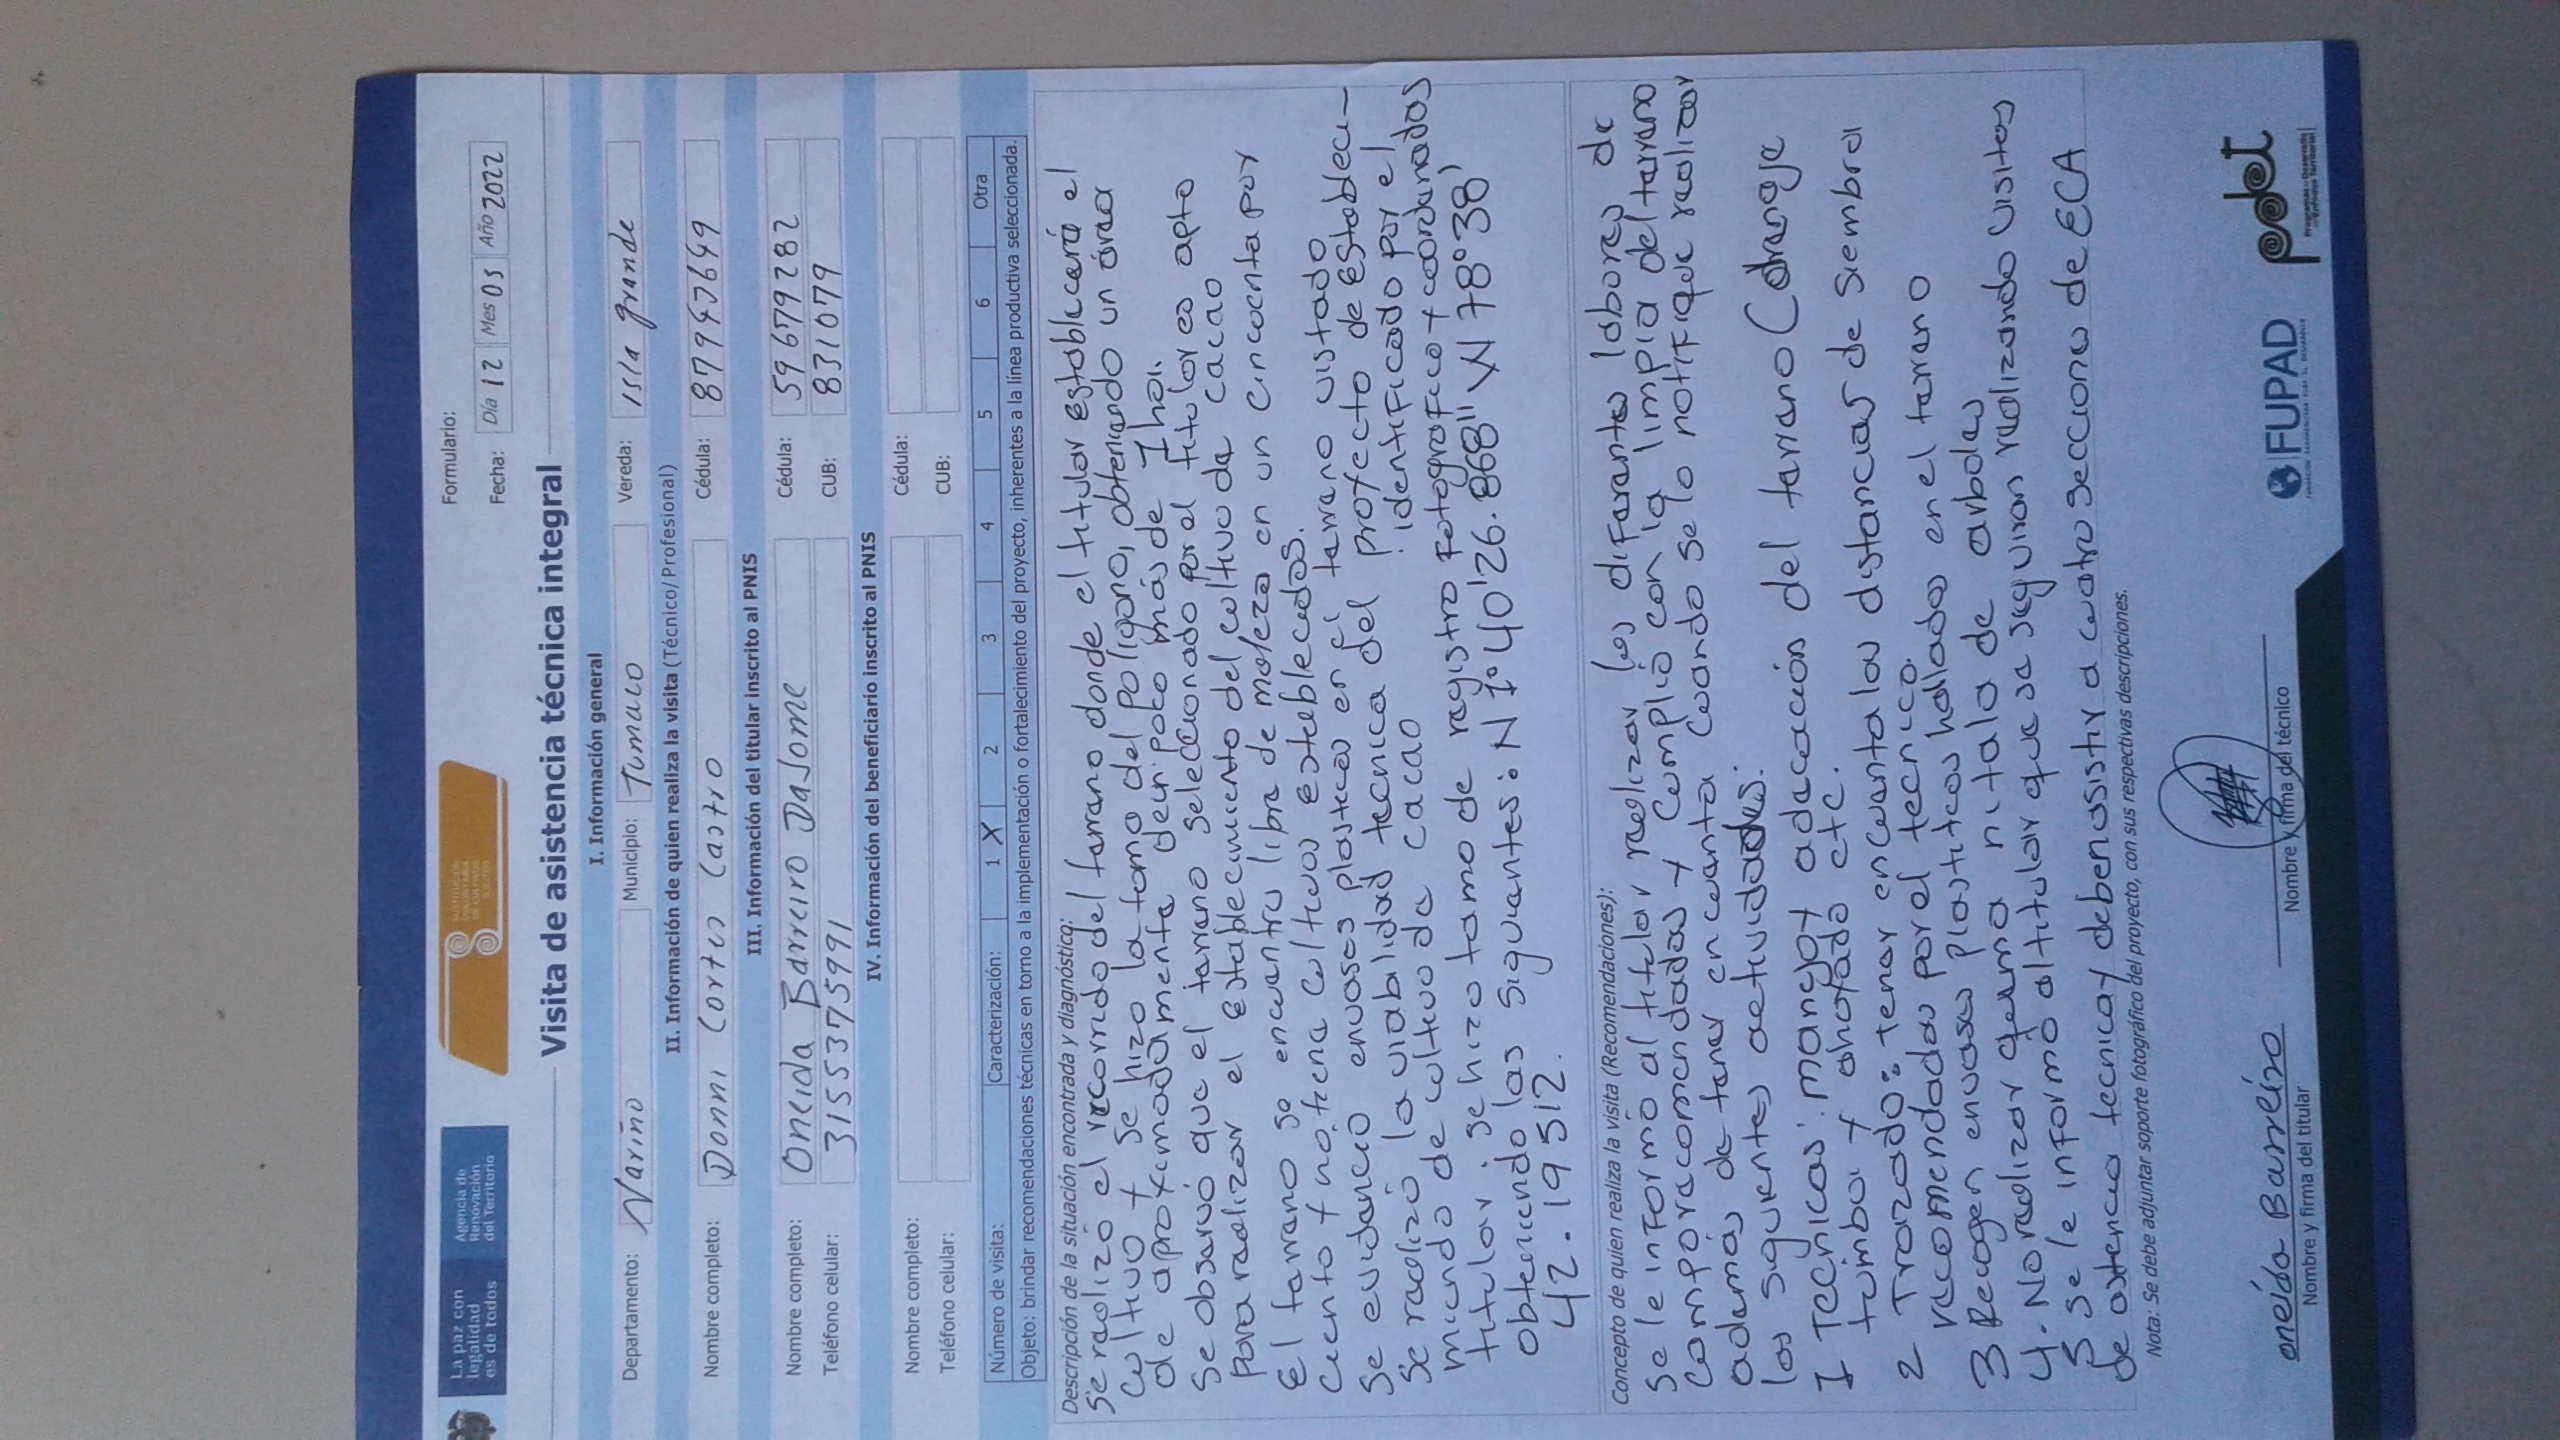 La paz con
legalidad
es de todos
Agencia de
Renovación
del Territorio
SUSTITUCIÓN
VOLUNTARIA
DE CULTIVOS
ILÍCITOS
Formulario:
Fecha: Día 12 Mes 05 Año 2022
Visita de asistencia técnica integral
I. Información general
Departamento: Nariño Municipio: Tumaco Vereda: isla grande
II. Información de quien realiza la visita (Técnico/Profesional)
Nombre completo: Donni Cortes Castro Cédula:
III. Información del titular inscrito al PNIS
Nombre completo: Oneida Barreiro Dajome Cédula: 59679282
Teléfono celular: 3155375991 CUB: 831079
IV. Información del beneficiario inscrito al PNIS
Nombre completo: Cédula:
Teléfono celular: CUB:
Número de visita: Caracterización: 1 X 2 3 4 5 6 Otra
Objeto: brindar recomendaciones técnicas en torno a la implementación o fortalecimiento del proyecto, inherentes a la línea productiva seleccionada.
Descripción de la situación encontrada y diagnóstico:
Se realizó el recorrido del terreno donde el titular establecerá el
cultivo y se hizo la toma del poligono, obteniendo un área
de aproximadamente de un poco más de 1 ha.
Se observó que el terreno seleccionado por el titular es apto
para realizar el establecimiento del cultivo de cacao
El terreno se encuentra libre de maleza en un cincuenta por
ciento y no tiene cultivos establecidos.
Se evidenció envases plasticos en el terreno visitado
Se realizó la viabilidad tecnica del proyecto de estableci-
miento de cultivo de cacao identificado por el
titular. se hizo toma de registro fotografico y coordenadas
obteniendo las siguientes: N 1°40'26.868" W 78°38'
42.19512.
Concepto de quien realiza la visita (Recomendaciones):
Se le informó al titular realizar las diferentes labores de
campo recomendadas y cumplió con la limpia del terreno
además de tener en cuenta cuando se lo notifique realizar
las siguientes actividades:
1 Tecnicas: manejo y adecuación del terreno (drenaje
tumba y ahoyado etc.
2 Trazado: tener en cuenta las distancias de siembra
recomendadas por el tecnico.
3 Recoger envases plasticos hallados en el terreno
4. No realizar quema ni tala de arboles
5 se le informó al titular que se seguiran realizando visitas
de asistencia tecnica y debe asistir a cuatro secciones de ECA
Nota: Se debe adjuntar soporte fotográfico del proyecto, con sus respectivas descripciones.
oneida Barreiro
Nombre y firma del titular
Nombre y firma del técnico
FUPAD
FUNDACIÓN PANAMERICANA PARA EL DESARROLLO
pdet
Programas de Desarrollo
con Enfoque Territorial